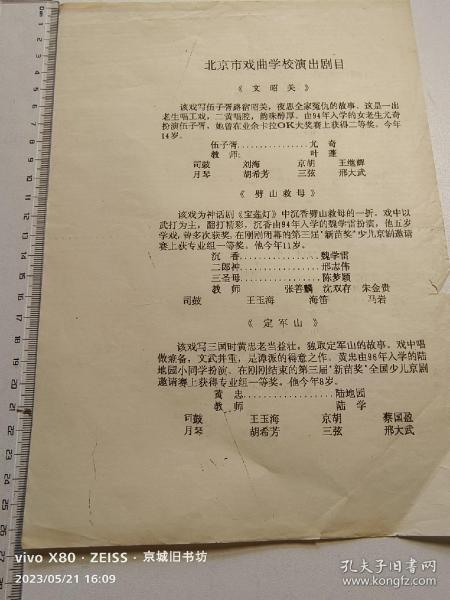 北京市戏曲学校演出剧目
《文昭关》
该戏写伍子胥路宿昭关，夜思全家冤仇的故事。这是一出
老生唱工戏，二黄唱腔，韵味醇厚。由94年入学的女老生尤奇
扮演伍子胥，她曾在业余卡拉OK大奖赛上获得二等奖。今年
14岁。
伍子胥................尤 奇
教 师: 叶 蓬
司鼓 刘海 京胡 王继辉
月琴 胡希芳 三弦 邢大武
《劈山救母》
该戏为神话剧《宝莲灯》中沉香劈山救母的一折。戏中以
武打为主，翻打精彩，沉香由94年入学的魏学雷扮演，他五岁
学戏，曾多次获奖。在刚刚闭幕的第三届"新苗奖"少儿京剧邀请
赛上获专业组一等奖。他今年11岁。
沉 香................魏学雷
二郎神................邢志伟
三圣母................陈梦颖
教 师 张善麟 沈双存 朱金贵
司鼓 王玉海 海笛 马岩
《定军山》
该戏写三国时黄忠老当益壮，独取定军山的故事。戏中唱
做兼备，文武并重，是谭派的得意之作。黄忠由96年入学的陆
地园小同学扮演。在刚刚结束的第三届"新苗奖"全国少儿京剧
邀请赛上获得专业组一等奖。他今年8岁。
黄 忠................陆地园
教 师 陆 学
司鼓 王玉海 京胡 蔡国盈
月琴 胡希芳 三弦 邢大武
vivo X80 · ZEISS · 京城旧书坊
2023/05/21 16:09
孔夫子旧书网
www.kongfz.com